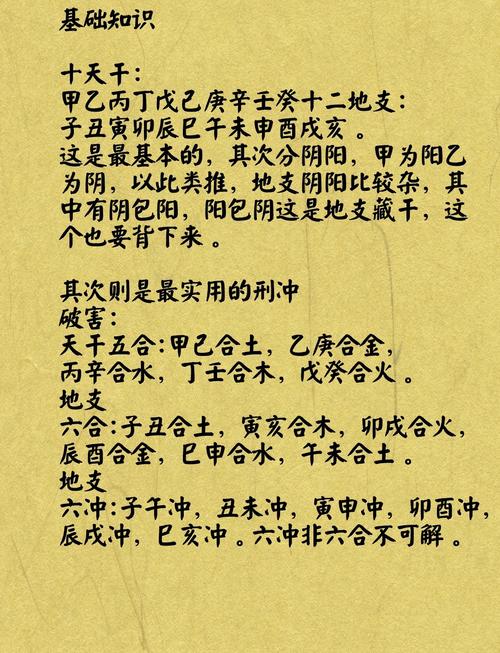 基础知识
十天干：
甲乙丙丁戊己庚辛壬癸十二地支：
子丑寅卯辰巳午未申酉戌亥。
这是最基本的，其次分阴阳，甲为阳乙
为阴，以此类推，地支阴阳比较杂，其
中有阴包阳，阳包阴这是地支藏干，这
个也要背下来。
其次则是最实用的刑冲
破害：
天干五合：甲己合土，乙庚合金，
丙辛合水，丁壬合木，戊癸合火。
地支
六合：子丑合土，寅亥合木，卯戌合火，
辰酉合金，巳申合水，午未合土。
地支
六冲：子午冲，丑未冲，寅申冲，卯酉冲，
辰戌冲，巳亥冲。六冲非六合不可解。